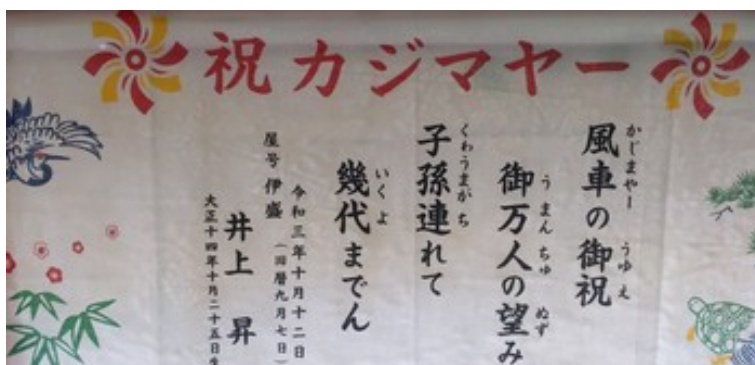 祝カジマヤー
風車の御祝
かじまやー うゆえ
御万人の望み
うまんちゅ ぬず
子孫連れて
くわうまがち
幾代までん
いくよ
令和三年十月十二日
(旧暦九月七日)
屋号 伊盛
井上 昇
大正十四年十月二十五日生